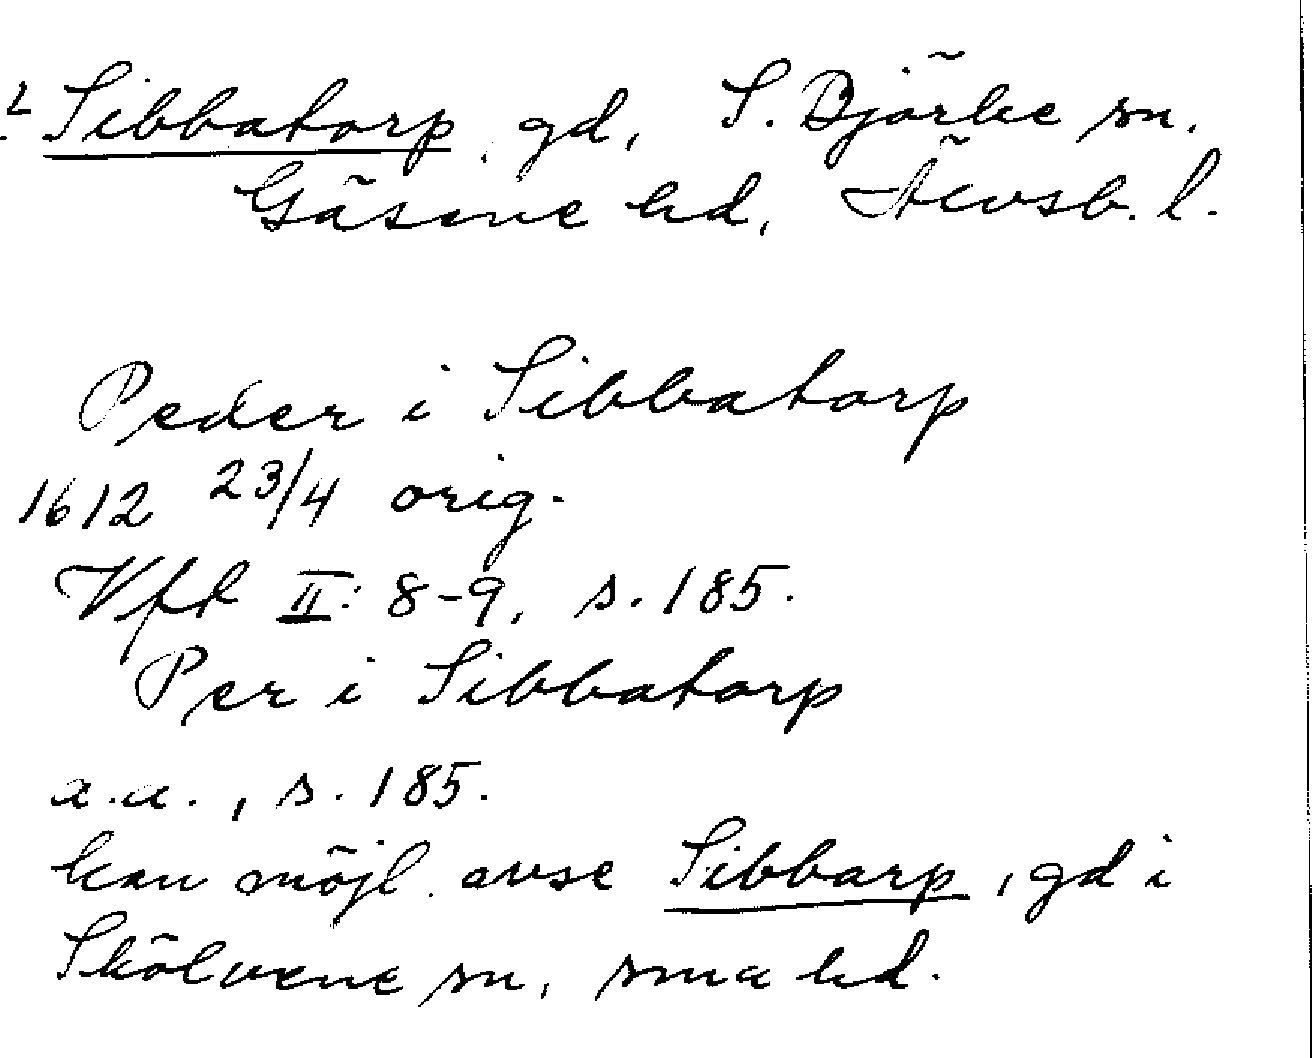 ? Sibbatorp, gd, S. Björke sn.
Gäsene hd, Älvsb. l.
Peder i Sibbatorp
1612 23/4 orig.
Vft II: 8-9, s. 185.
Per i Sibbatorp
a.a., s. 185.
kan möjl. avse Sibbarp, gd i
Skölvene sn, sma hd.